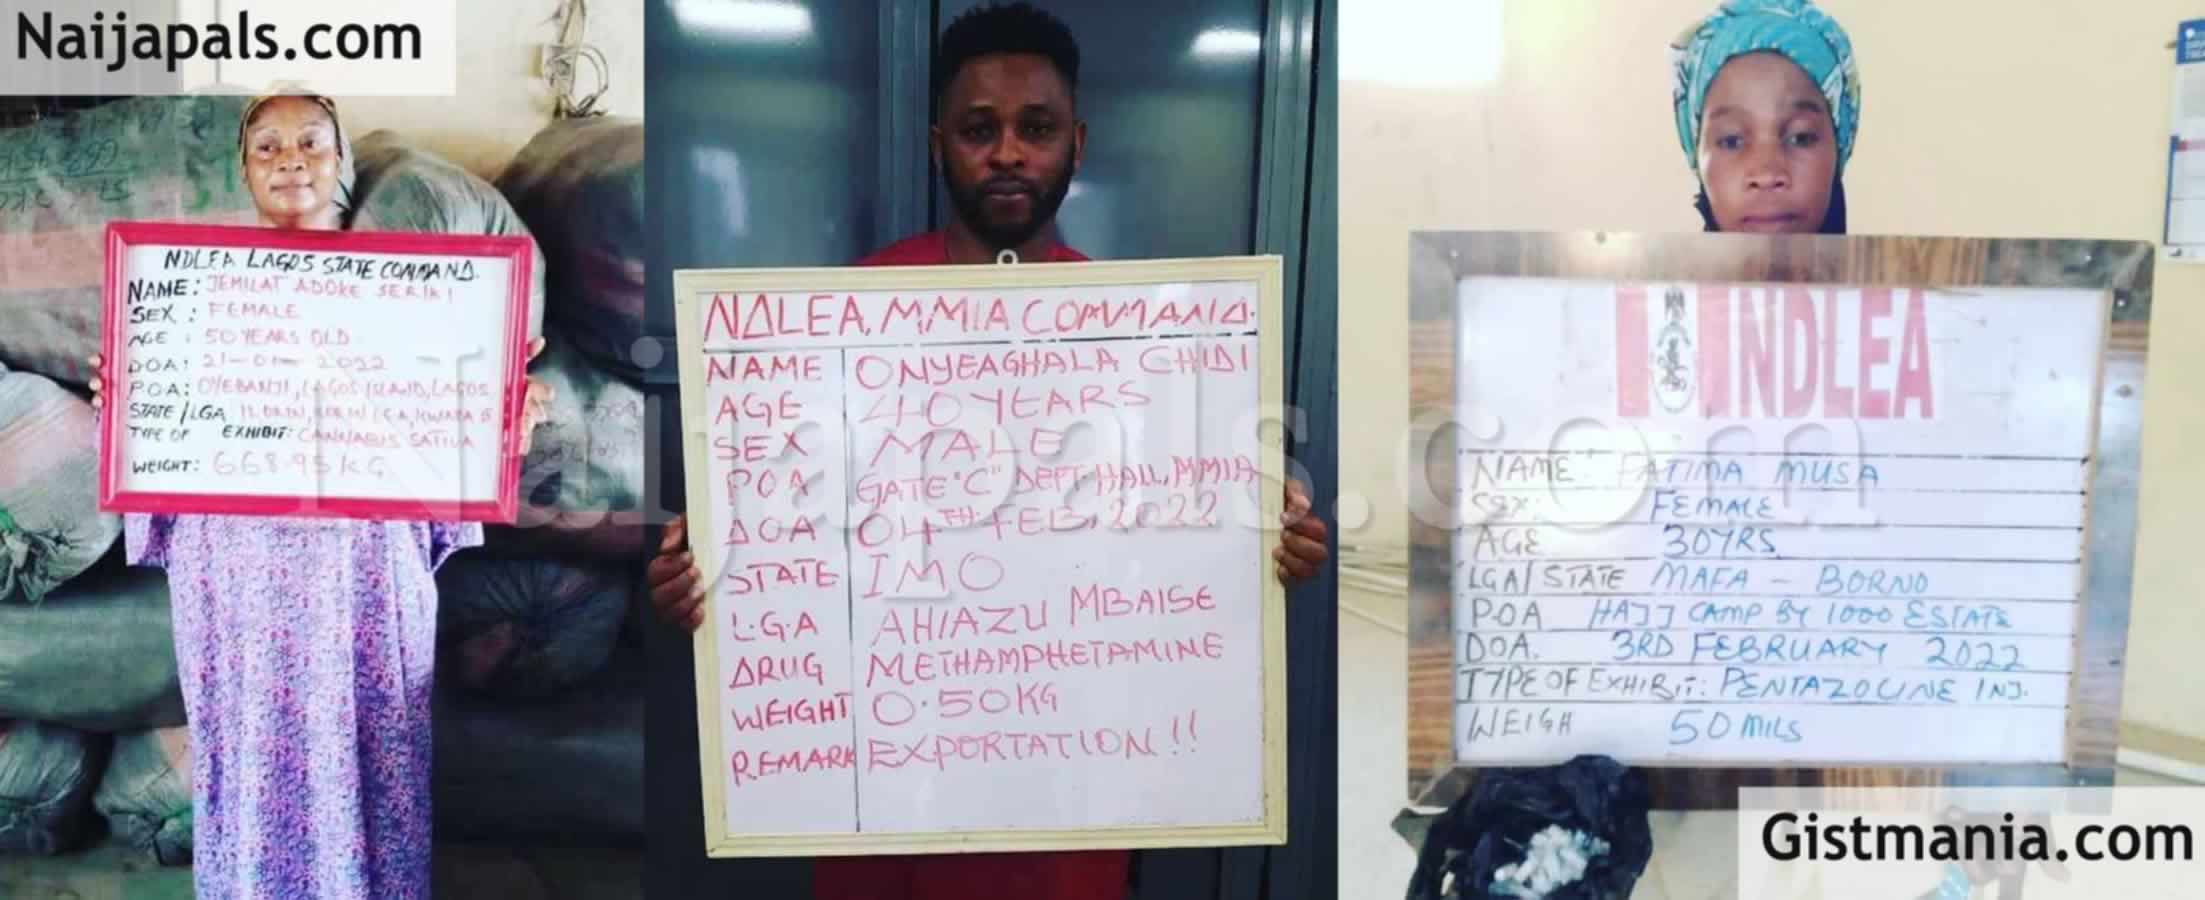 Naijapals.com
NDLEA LAGOS STATE COMMAND.
NAME: JEMILAT ADOKE SERIKI
SEX: FEMALE
AGE: 50 YEARS OLD
DOA: 21-01-2022
P.O.A: OYEBANJI, LAGOS ISLAND, LAGOS
STATE/LGA ILORIN, L.G.A, KWARA S
TYPE OF EXHIBIT: CANNABIS SATIVA
WEIGHT: 668.95KG
NDLEA, MMIA COMMAND.
NAME ONYEAGHALA CHIDI
AGE 40 YEARS
SEX MALE
POA GATE "C" DEPT. HALL, MMIA
DOA 04TH FEB, 2022
STATE IMO
L.G.A AHIAZU MBAISE
DRUG METHAMPHETAMINE
WEIGHT 0.50KG
REMARK EXPORTATION!!
NDLEA
NAME: FATIMA MUSA
SEX: FEMALE
AGE 30YRS
LGA/STATE MAFA - BORNO
P.O.A HAJJ CAMP BY 1000 ESTATE
DOA. 3RD FEBRUARY 2022
TYPE OF EXHIBIT: PENTAZOCINE INJ.
WEIGH 50 MILS
Naijapals.com
Gistmania.com